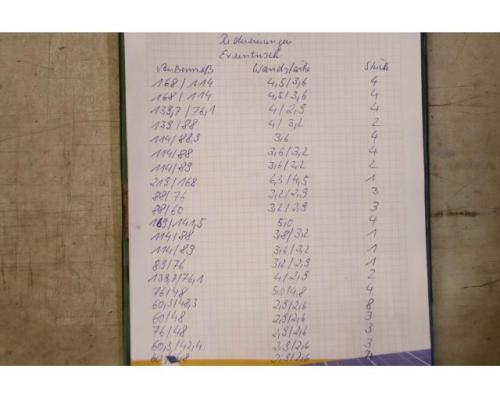 Reduzierungen
Exzentrisch
Außenmaß Wandstärke Stück
168/114 4,5/3,6 4
168/114 4,5/3,6 4
139,7/76,1 4/2,9 4
139/88 4/3,2 2
114/88,9 3,6 4
114/88 3,6/3,2 4
114/89 3,6/3,2 2
219/168 6,3/4,5 1
88/76 3,2/2,9 3
88/60 3,2/2,9 3
169/141,5 5,0 4
114/88 3,8/3,2 1
114/89 3,6/3,2 1
89/76 3,2/2,9 1
139,7/76,1 4/2,9 2
76/48 5,0/4,8 4
60,3/48,3 2,9/2,6 8
60/48 2,9/2,6 3
76/48 2,9/2,6 3
60,3/42,4 2,9/2,6 3
48 2,9/2,6